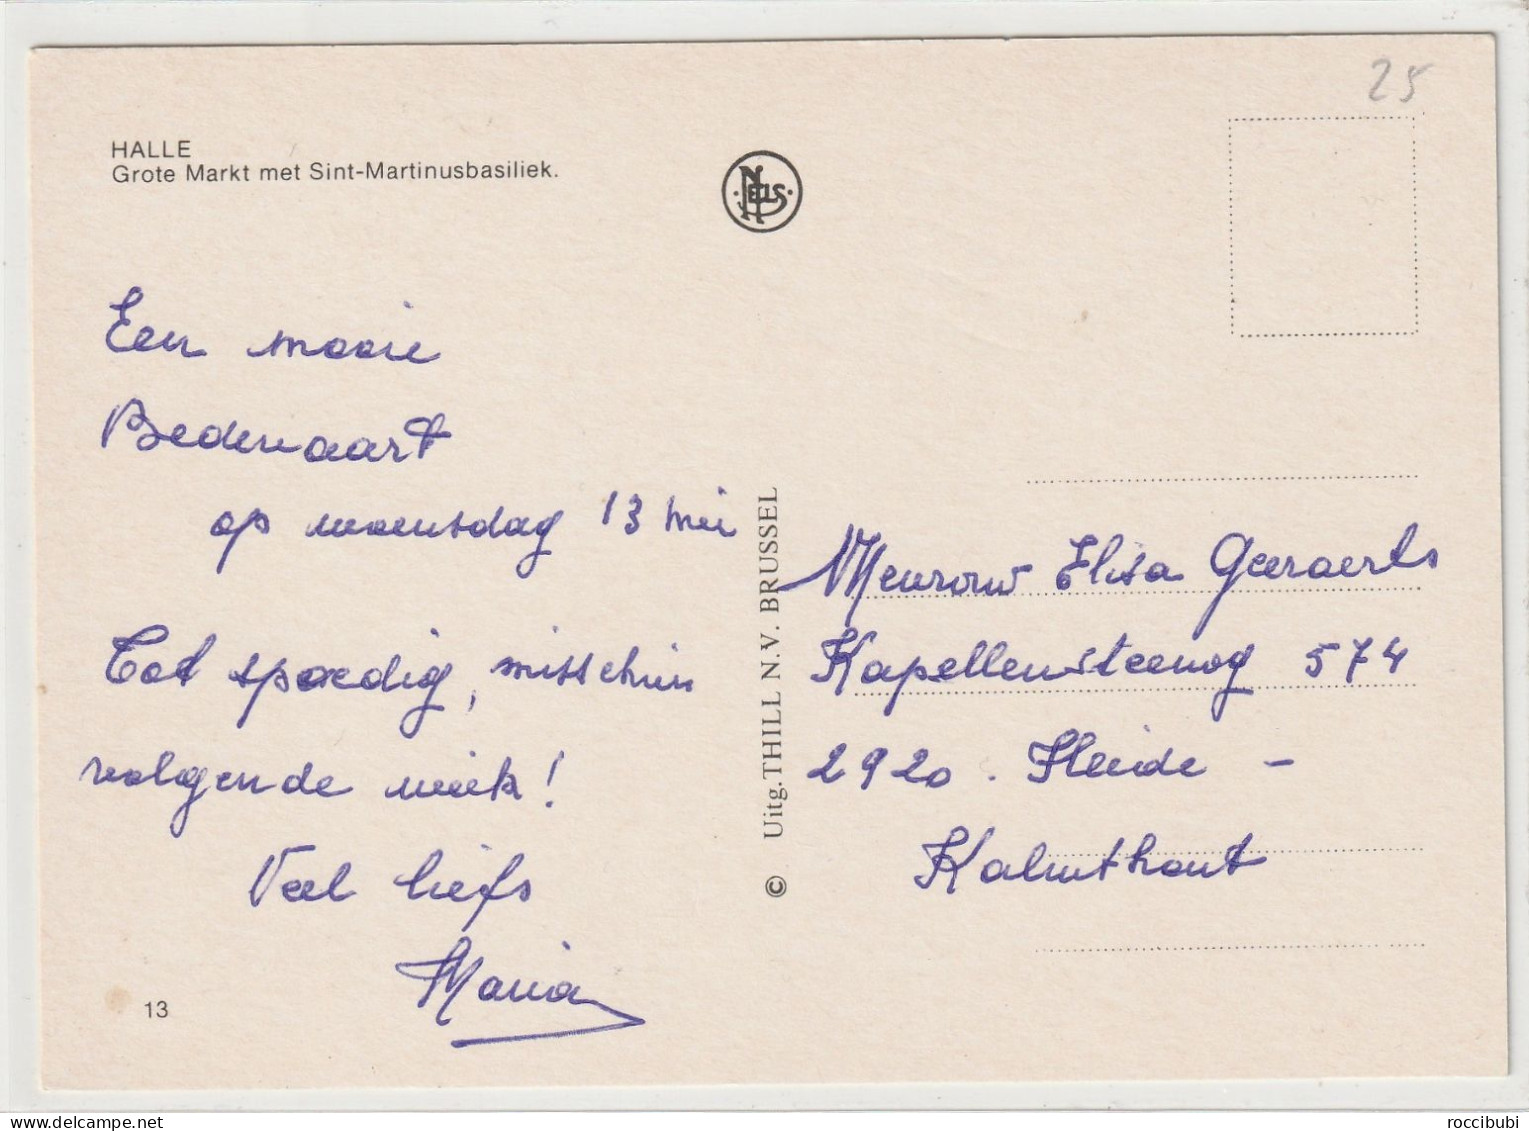 25
HALLE
Grote Markt met Sint-Martinusbasiliek.
NELS
Een mooie
Bedevaart
op woensdag 13 mei
Tot spoedig, misschien
volgende week!
Veel liefs
Maria
13
© Uitg. THILL N.V. BRUSSEL
Mevrouw Elisa Geeraerts
Kapellensteenweg 574
2920. Heide -
Kalmthout
www.delcampe.net
roccibubi